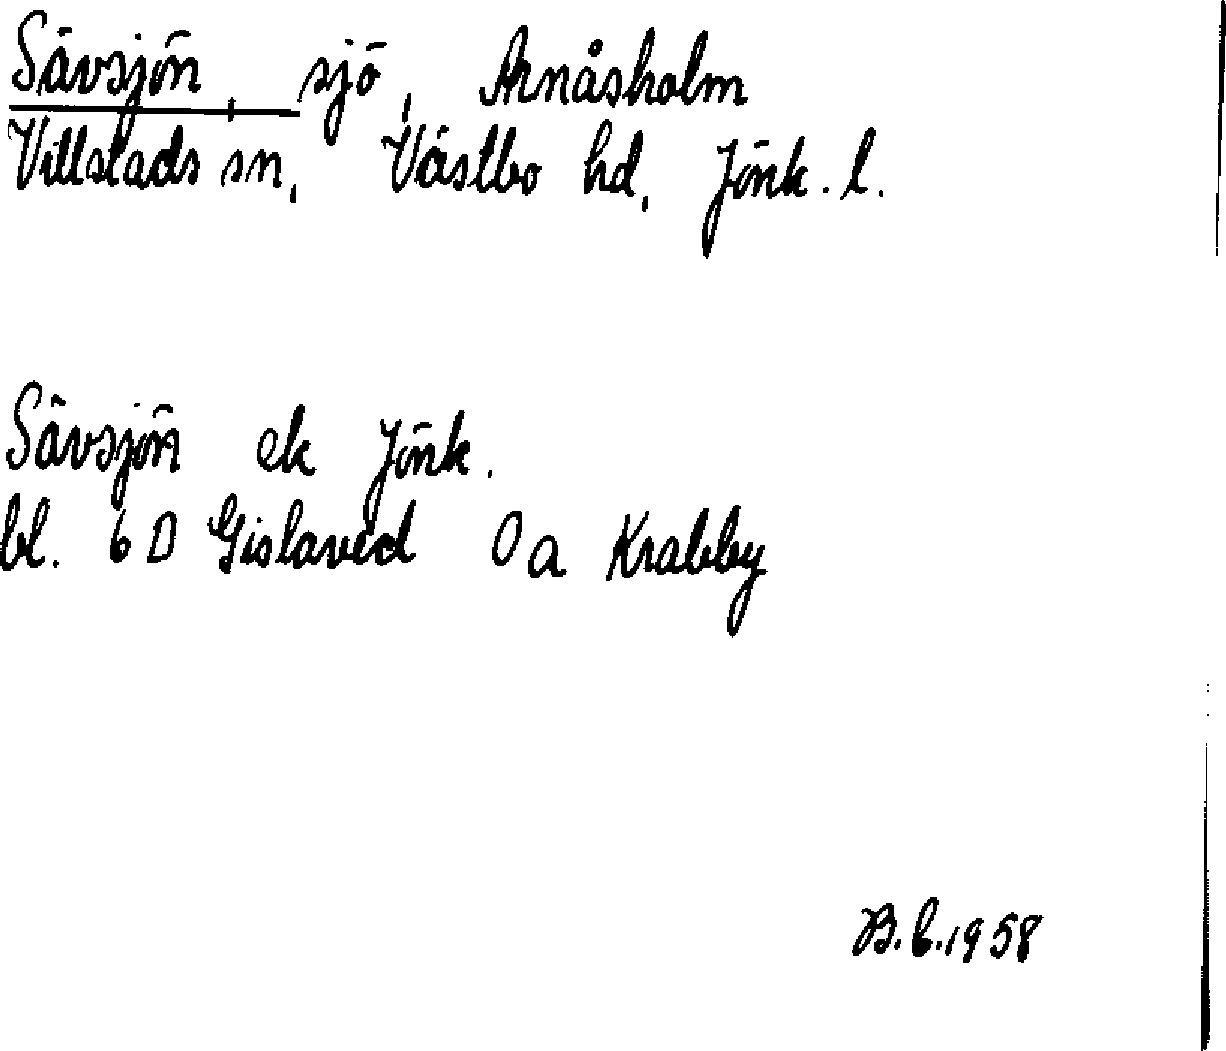 Sävsjön, sjö, Arnåsholm
Villstads sn, Västbo hd, Jönk. l.
Sävsjön ek Jönk.
bl. 6 D Gislaved 0 a Krabby
B.C. 1958